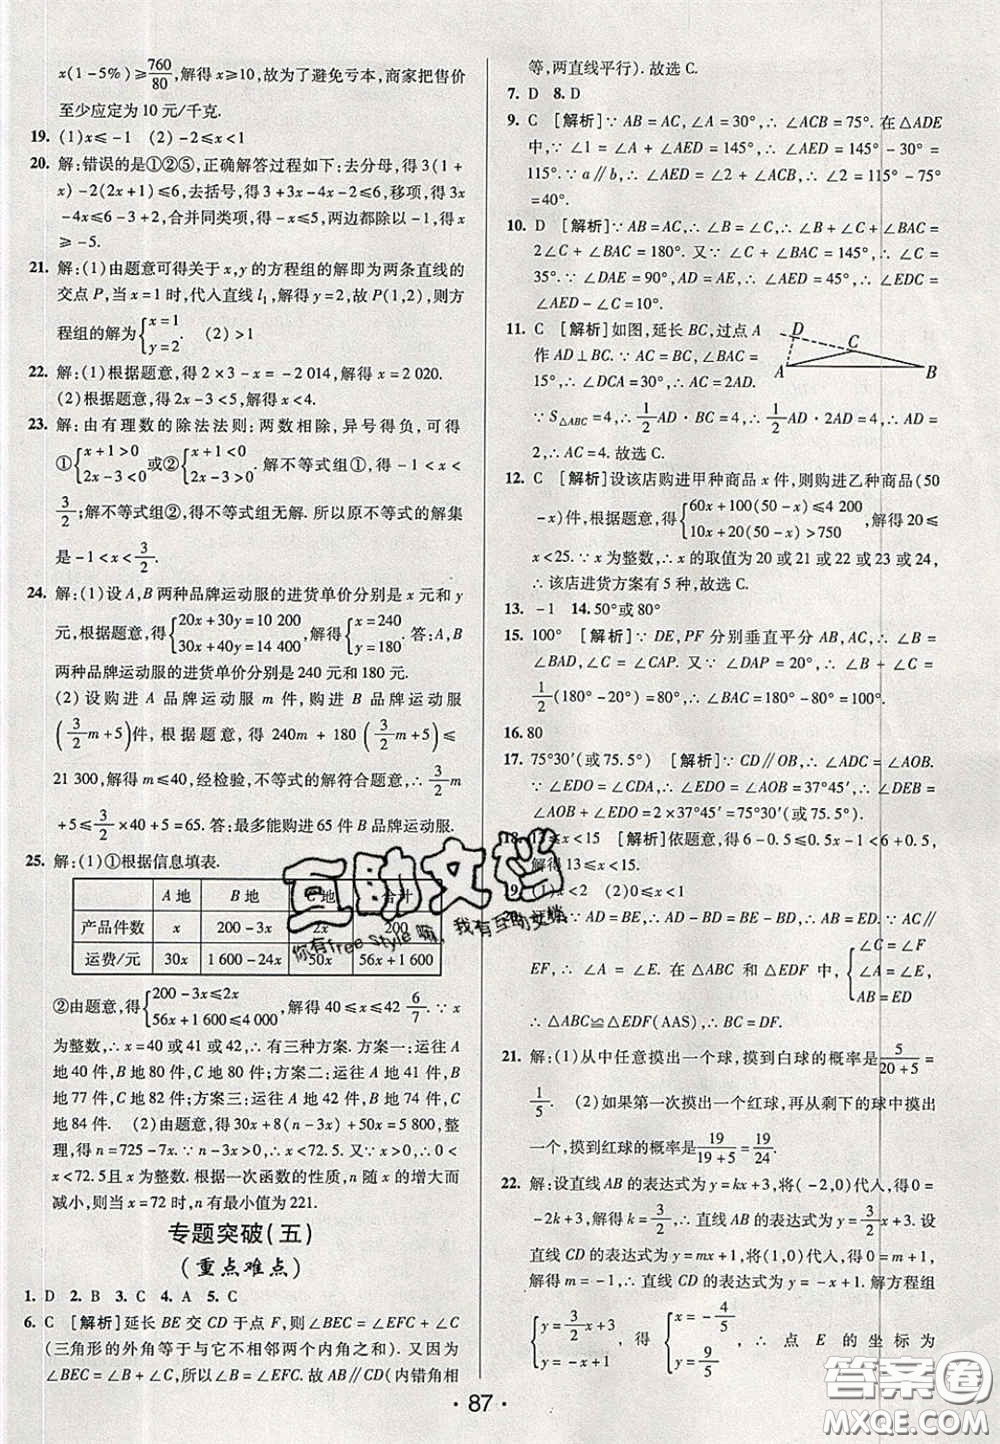 x(1-5%)≥760/80,解得x≥10,故为了避免亏本,商家把售价
至少应定为10元/千克.
19. (1)x≤-1 (2)-2≤x<1
20. 解:错误的是①②⑤,正确解答过程如下:去分母,得3(1+
x)-2(2x+1)≤6,去括号,得3+3x-4x-2≤6,移项,得3x
-4x≤6-3+2,合并同类项,得-x≤5,两边都除以-1,得x
≥-5.
21. 解:(1)由题意可得关于x,y的方程组的解即为两条直线的
交点P,当x=1时,代入直线l₁,解得y=2,故P(1,2),则方
程组的解为{x=1, y=2. (2)>1
22. 解:(1)根据题意,得2×3-x=-2 014,解得x=2 020.
(2)根据题意,得2x-3<5,解得x<4.
23. 解:由有理数的除法法则:两数相除,异号得负,可得
①{x+1>0 2x-3<0 或②{x+1<0 2x-3>0. 解不等式组①,得-1<x<
3/2;解不等式组②,得不等式组无解. 所以原不等式的解集
是-1<x<3/2.
24. 解:(1)设A,B两种品牌运动服的进货单价分别是x元和y
元,根据题意,得{20x+30y=10 200 30x+40y=14 400,解得{x=240 y=180. 答:A,B
两种品牌运动服的进货单价分别是240元和180元.
(2)设购进A品牌运动服m件,购进B品牌运动服
(3/2m+5)件,根据题意,得240m+180(3/2m+5)≤
21 300,解得m≤40,经检验,不等式的解符合题意,∴3/2m
+5≤3/2×40+5=65. 答:最多能购进65件B品牌运动服.
25. 解:(1)①根据信息填表.
A地 B地 C地 合计
产品件数 x 200-3x 2x 200
运费/元 30x 1 600-24x 50x 56x+1 600
②由题意,得{200-3x≤2x 56x+1 600≤4 000,解得40≤x≤42 6/7. ∵x
为整数,∴x=40或41或42,∴有三种方案. 方案一:运往A
地40件,B地80件,C地80件;方案二:运往A地41件,B
地77件,C地82件;方案三:运往A地42件,B地74件,C
地84件. (2)由题意,得30x+8(n-3x)+50x=5 800,整
理,得n=725-7x. ∵n-3x>0,∴725-7x-3x>0,∴0<
x<72.5且x为整数. 根据一次函数的性质,n随x的增大而
减小,则当x=72时,n有最小值为221.
专题突破(五)
(重点难点)
1. D 2. B 3. C 4. A 5. C
6. C [解析]延长BE交CD于点F,则∠BEC=∠EFC+∠C
(三角形的外角等于与它不相邻两个内角之和). 又∵
∠BEC=∠B+∠C,所以∠B=∠EFC. 故AB∥CD(内错角相
等,两直线平行). 故选C.
7. D 8. D
9. C [解析]∵AB=AC,∠A=30°,∴∠ACB=75°. 在△ADE
中,∵∠1=∠A+∠AED=145°,∴∠AED=145°-30°=
115°. ∵a∥b,∴∠AED=∠2+∠ACB,∴∠2=115°-75°
=40°.
10. D [解析]∵AB=AC,∴∠B=∠C,∴∠B+∠C+∠BAC=
2∠C+∠BAC=180°. 又∵∠C+∠BAC=145°,∴∠C=
35°. ∵∠DAE=90°,AD=AE,∴∠AED=45°,∴∠EDC=
∠AED-∠C=10°.
11. C [解析]如图,延长BC,过点A
作AD⊥BC. ∵AC=BC,∠BAC=
15°,∴∠ACD=30°,∴AC=2AD.
∵S△ABC=4,∴1/2AD·BC=4,∴1/2AD·2AD=4,∴AD=2,
∴AC=4. 故选C.
D
C
A
B
12. C [解析]设该店购进甲种商品x件,则购进乙种商品(50
-x)件,根据题意,得{60x+100(50-x)≤4 200 10x+20(50-x)>750,解得20≤
x<25. ∵x为整数,∴x的取值为20或21或22或23或24,
∴该店进货方案有5种,故选C.
13. -1 14. 50°或80°
15. 100° [解析]∵DE,PF分别垂直平分AB,AC,∴∠B=
∠BAD,∠C=∠CAP. 又∵∠DAP=20°,∴∠B+∠C=
1/2(180°-20°)=80°,∴∠BAC=180°-80°=100°.
16. 80
17. 75°30′(或75.5°) [解析]∵CD∥OB,∴∠ADC=∠AOB.
∵∠EDO=∠CDA,∴∠EDO=∠AOB=37°45′,∴∠DEB=
∠AOB+∠EDO=2×37°45′=75°30′(或75.5°).
18. 13≤x<15 [解析]依题意,得6-0.5≤0.5x-1<6+0.5,
解得13≤x<15.
19. (1)x<2 (2)0≤x<4
20. 解:∵AD=BE,∴AD-BD=BE-BD,∴AB=ED. ∵AC∥
EF,∴∠A=∠E. 在△ABC和△EDF中,{∠C=∠F ∠A=∠E AB=ED
∴△ABC≌△EDF(AAS),∴BC=DF.
21. 解:(1)从中任意摸出一个球,摸到白球的概率是5/(20+5)=
1/5. (2)如果第一次摸出一个红球,再从剩下的球中摸出
一个,摸到红球的概率是19/(19+5)=19/24.
22. 解:设直线AB的表达式为y=kx+3,将(-2,0)代入,得0=
-2k+3,解得k=3/2,∴直线AB的表达式为y=3/2x+3. 设
直线CD的表达式为y=mx+1,将(1,0)代入,得0=m+1,
解得m=-1,∴直线CD的表达式为y=-x+1. 解方程组
{y=3/2x+3 y=-x+1,得{x=-4/5 y=9/5 ∴点E的坐标为
·87·
互助文档
你有free style嘛,我有互助文档
答案圈
MXQE.COM